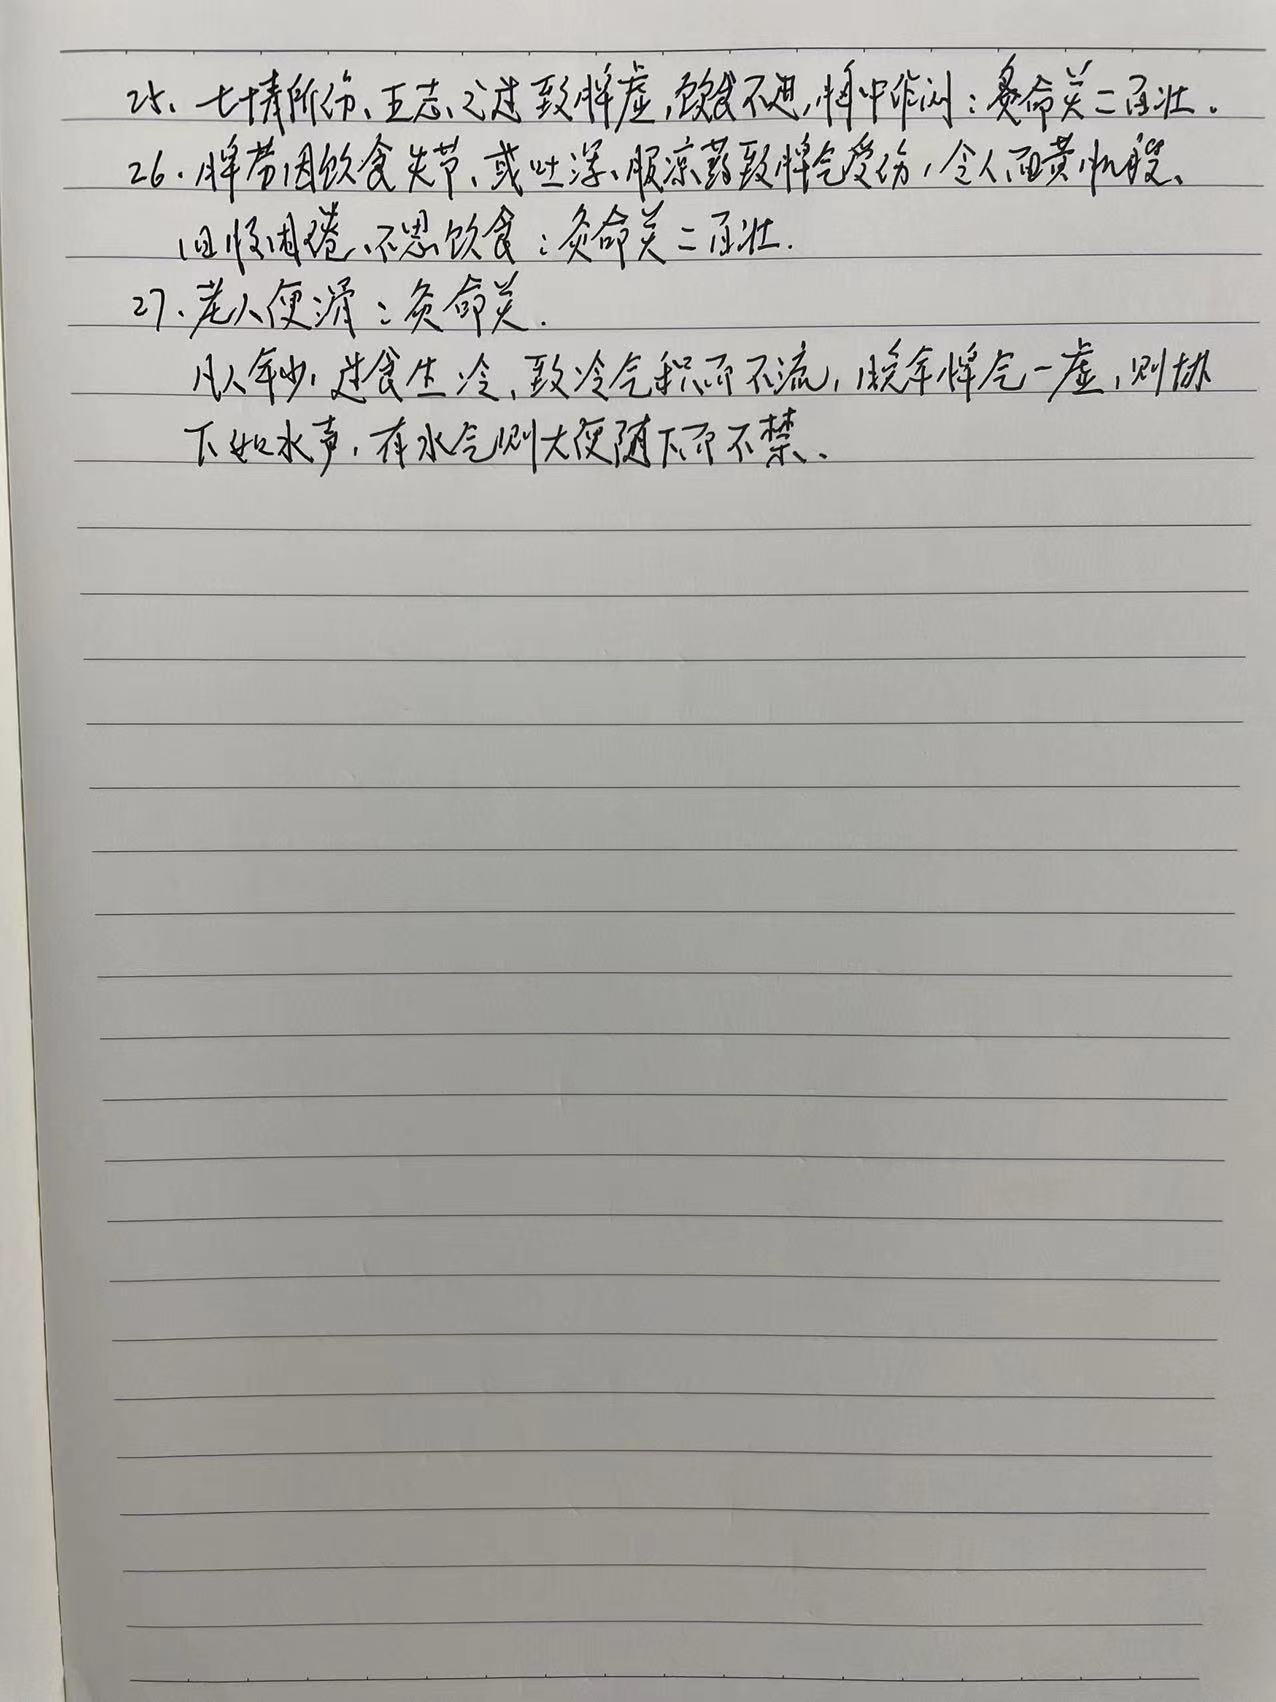 25. 七情所伤、五志之过致脾虚,饮食不进,脾中作闷:灸命关二百壮.
26. 脾劳因饮食失节、或吐泻、服凉药致脾气受伤,令人面黄肌瘦、
四肢困倦、不思饮食:灸命关二百壮.
27. 老人便滑:灸命关.
凡人年少,过食生冷,致冷气积而不流,晚年脾气一虚,则胁
下如水声,有水气则大便随下而不禁.